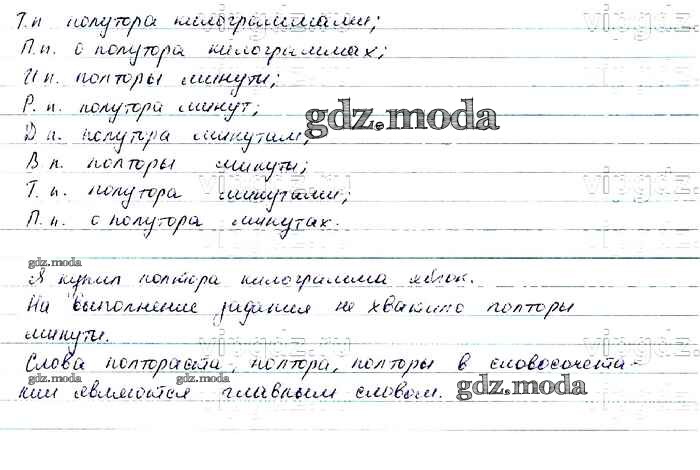 Т.п полутора килограммами;
П.п. о полутора килограммах;
И п. полторы минуты;
Р. п. полутора минут;
Д п. полутора минутам;
В п. полторы минуты;
Т. п. полутора минутами;
П. п. о полутора минутах.
gdz.moda
gdz.moda
Я купил полтора килограмма яблок.
На выполнение задания не хватило полторы
минуты.
Слова полтораста, полтора, полторы в словосочета-
нии являются главным словом.
gdz.moda
gdz.moda
gdz.moda